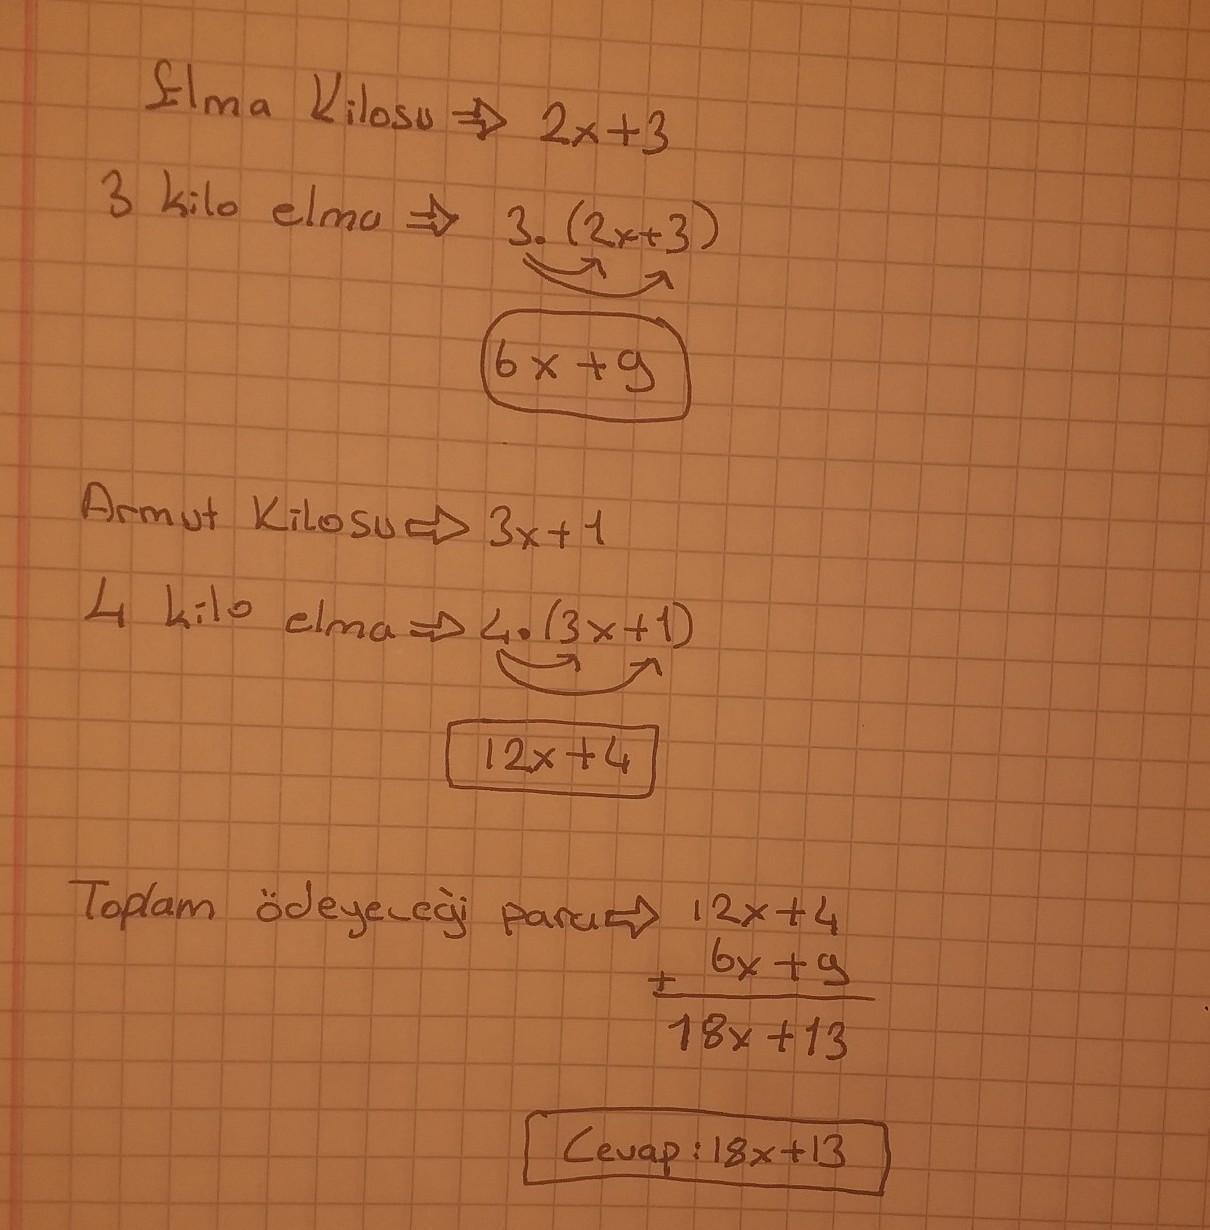 Elma Kilosu ⇒ 2x+3
3 kilo elma ⇒ 3.(2x+3)
6x+9
Armut Kilosu ⇒ 3x+1
4 kilo elma ⇒ 4.(3x+1)
12x+4
Toplam ödeyeceği para ⇒ 12x+4
+ 6x+9
18x+13
Cevap: 18x+13